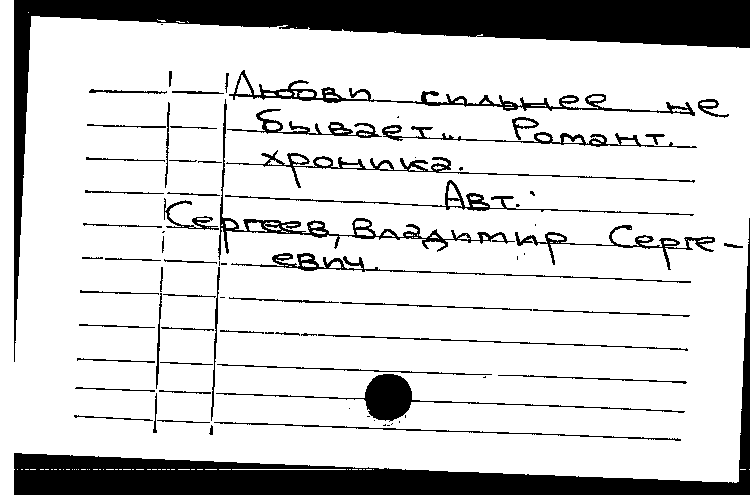 Любви сильнее не
бывает... Романт.
хроника.
Авт.:
Сергеев, Владимир Серге-
евич.